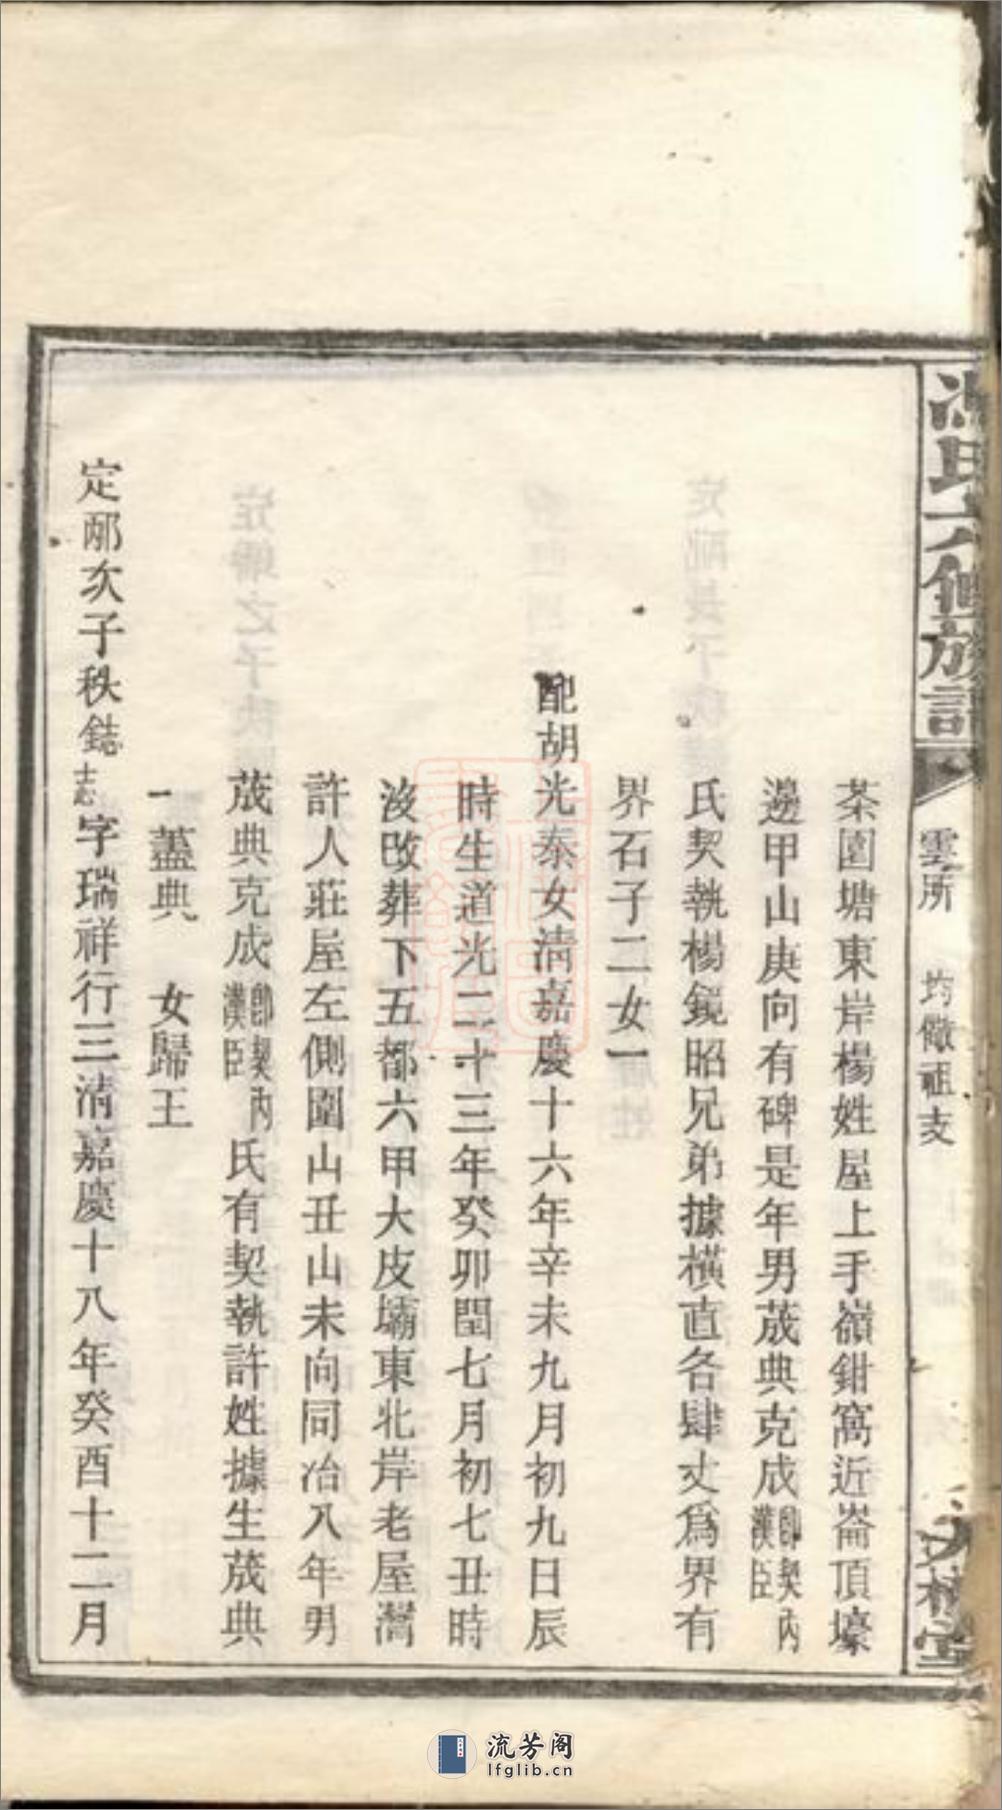 氏六修族譜
雲所
均儆祖支
茶園塘東岸楊姓屋上手嶺鉗窩近崙頂壕
邊甲山庚向有碑是年男茂典克成即契内漢臣
氏契執楊鏡昭兄弟據橫直各肆丈爲界有
界石子二女一
配胡光泰女清嘉慶十六年辛未九月初九日辰
時生道光二十三年癸卯閏七月初七丑時
沒改葬下五都六甲大皮壩東北岸老屋灣
許人莊屋左側圍山丑山未向同治八年男
茂典克成即契内漢臣氏有契執許姓據生茂典
一蓋典 女歸王
定邴次子秩鋕志字瑞祥行三清嘉慶十八年癸酉十二月
流芳阁
lfglib.cn